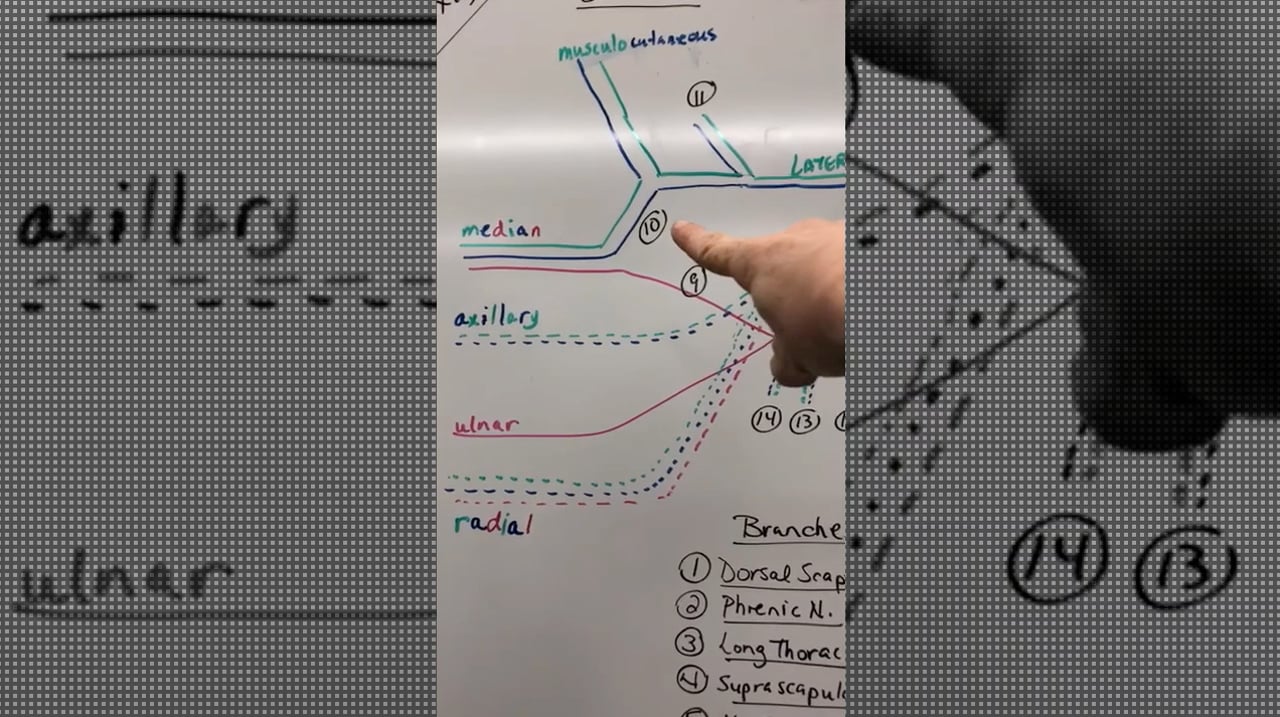 musculocutaneous
11
LATER
10
median
9
axillary
ulnar
14 13
radial
Branche
1 Dorsal Scap
2 Phrenic N.
3 Long Thorac
4 Suprascapul
axillary
ulnar
14 13